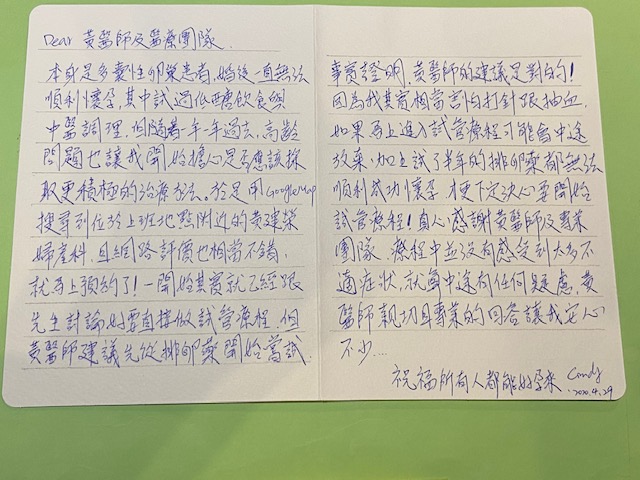 Dear 黃醫師及醫療團隊,
本身是多囊性卵巢患者,婚後一直無法
順利懷孕,其中試過低醣飲食與
中醫調理,但隨著一年一年過去,高齡
問題也讓我開始擔心是否應該採
取更積極的治療方法。於是用Google Map
搜尋到位於上班地點附近的黃建榮
婦產科,且網路評價也相當不錯,
就馬上預約了!一開始其實就已經跟
先生討論好要直接做試管療程,但
黃醫師建議先從排卵藥開始嘗試.
事實證明,黃醫師的建議是對的!
因為我其實相當害怕打針跟抽血,
如果馬上進入試管療程可能會中途
放棄,加上試了半年的排卵藥都無法
順利成功懷孕,才更下定決心要開始
試管療程!真心感謝黃醫師及專業
團隊,療程中並沒有感受到太多不
適症狀,就算中途有任何疑慮,黃
醫師親切且專業的回答讓我安心
不少....
祝福所有人都能好孕來 Candy
2020.4.29